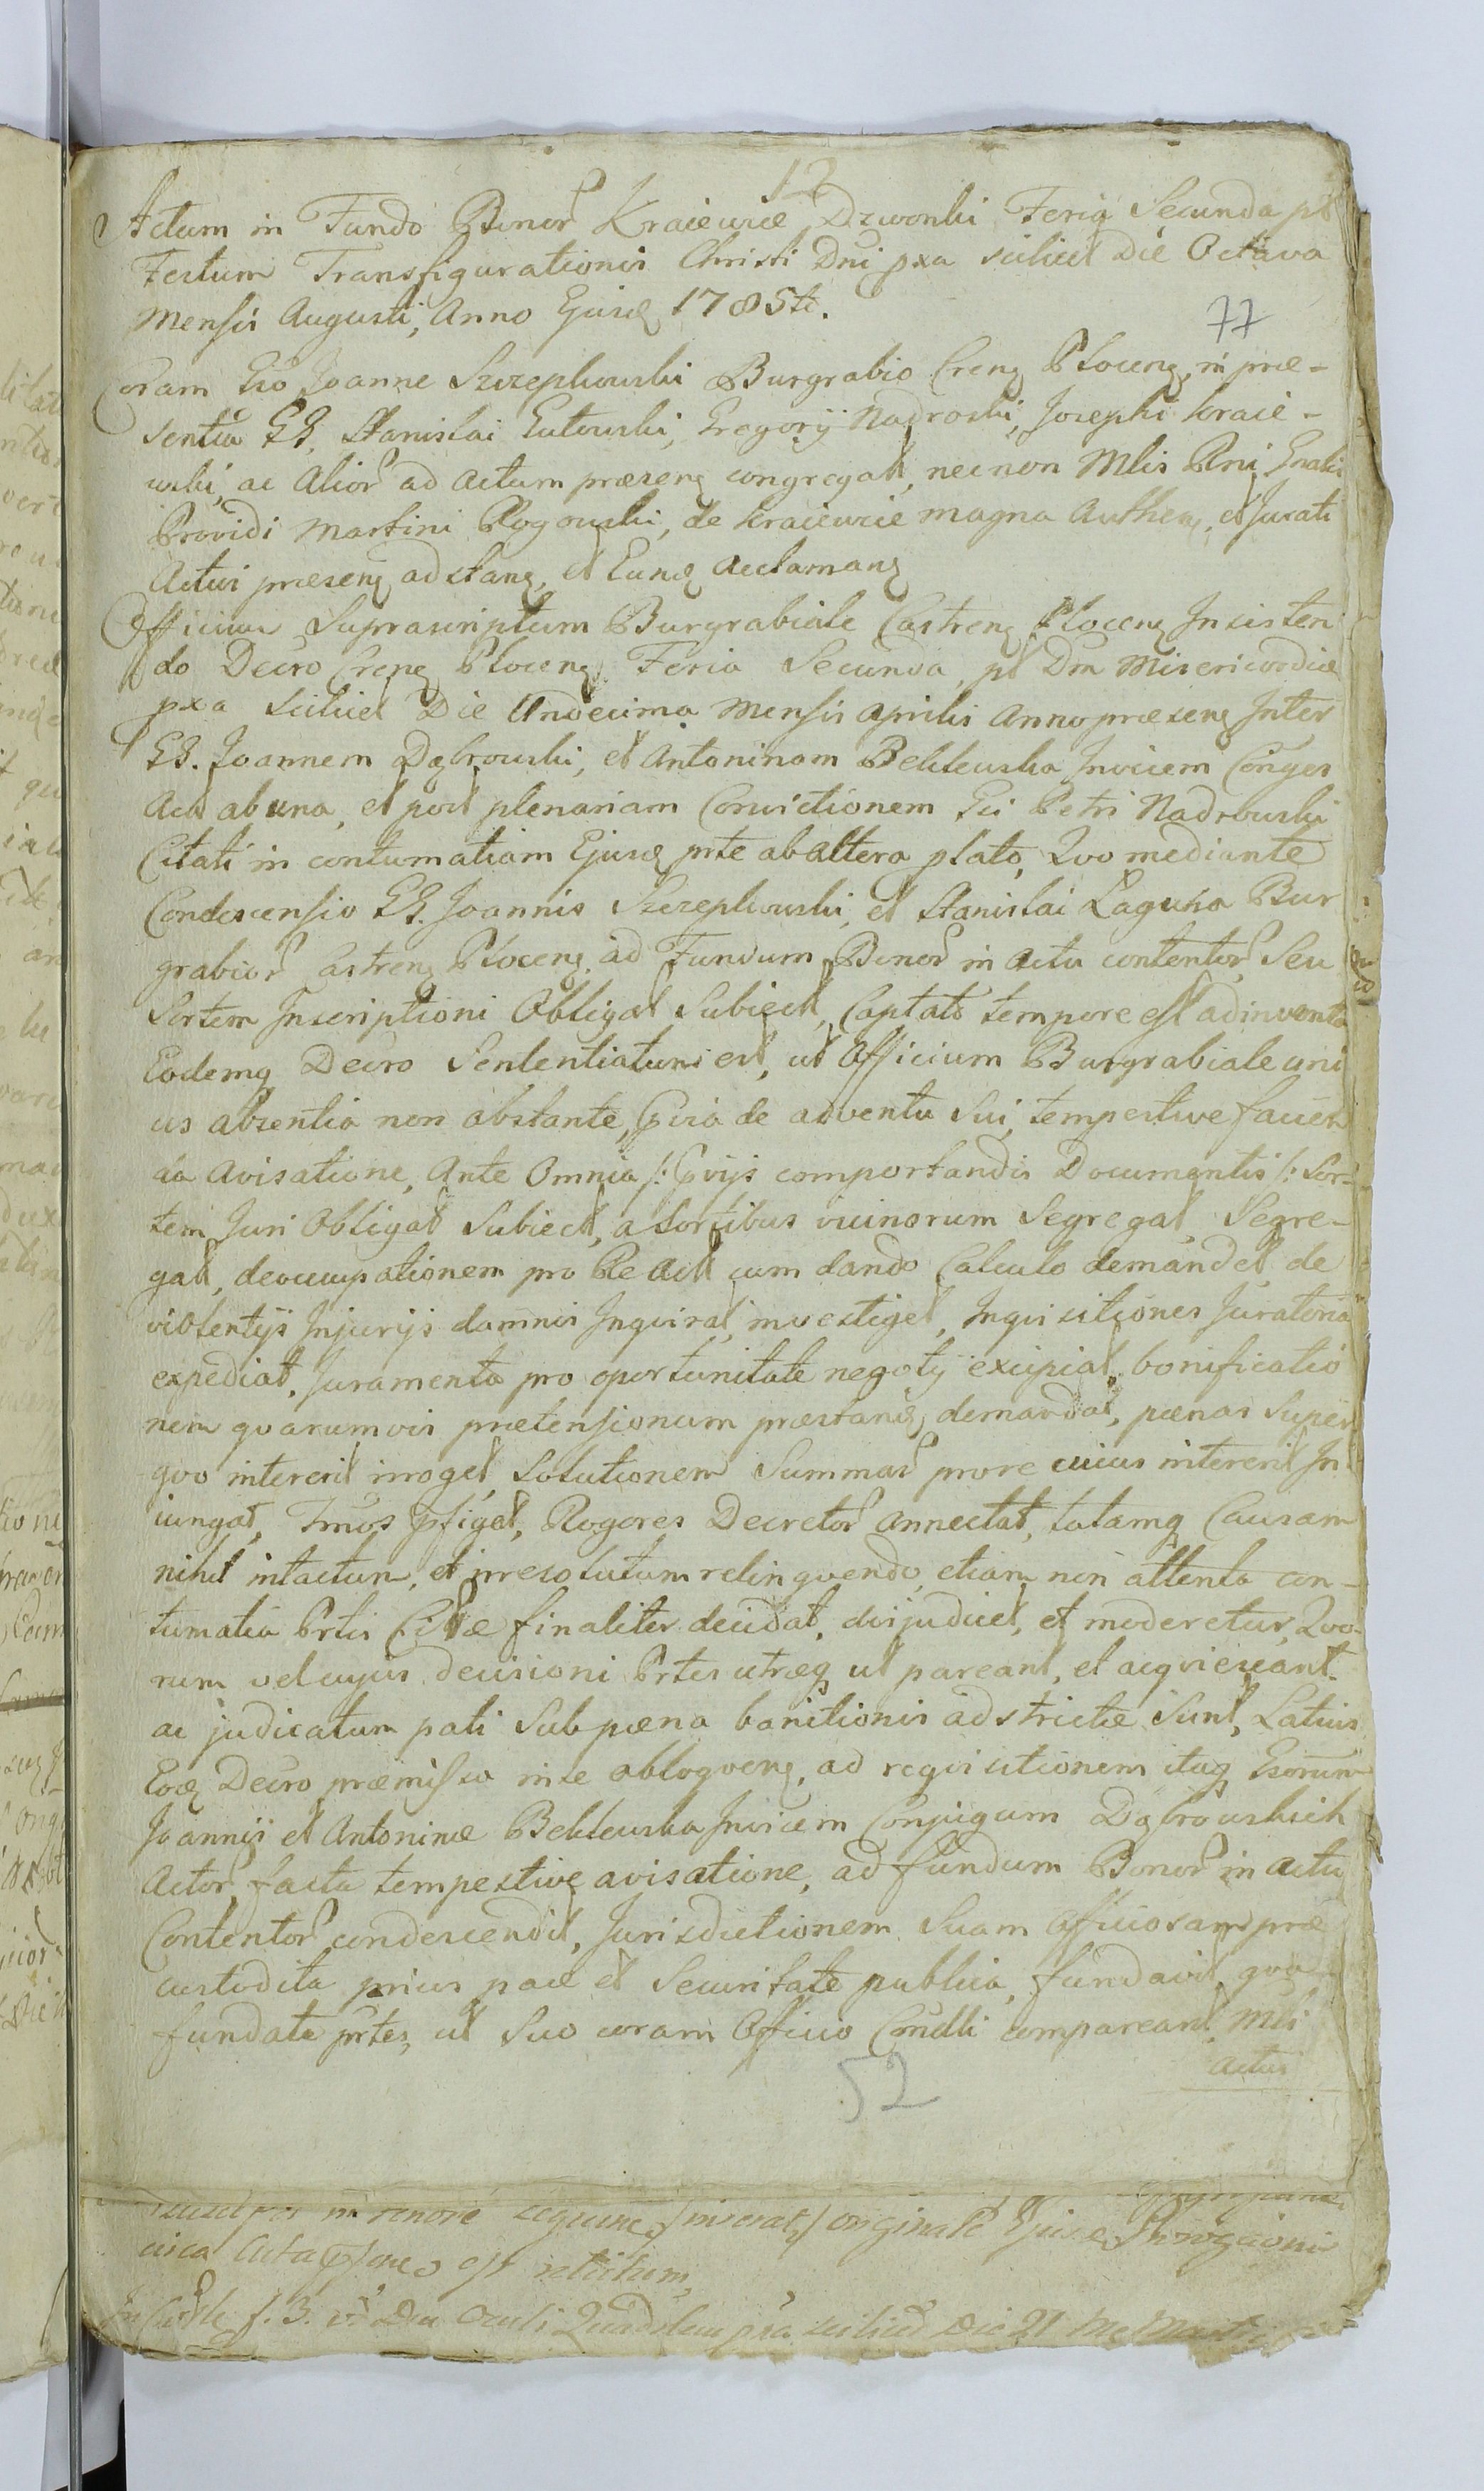 12
Actum in Fundo Bonor Kraiewice Dzwonki Feria Secunda pt
Festum Transfigurationis Christi Dni pxa scilicet Die Octava
Mensis Augusti, Anno Ejusq 1785to.
77
Coram Gso Joanne Szczepkowski Burgrabio Creng Plocenq, in præ-
sentia GG. Stanislai Gutowski, Gregorij Nadroski, Josephi Kraie-
wski, ac Alior ad Actum præsenq congregat, necnon Mlis Rni Gnalis
Providi Martini Rogowski, de Kraiewice magna Authenq, et Jurati
Actui præsenq adstanq, et Eunq Acclamanq
Officium Suprascriptum Burgrabiale Castrenq Plocenq Insisten
do Decro Crenq Plocenq Feria Secunda, pt Dm Misericordiæ
pxa scilicet Die Undecima Mensis Aprilis Anno præsenq Inter
GG. Joannem Dąbrowski, et Antoninam Beklewska Invicem Conjges
Act ab una, et post plenariam Convictionem Gsi Petri Nadrowski
Citati in contumatiam Ejusq prte ab altera plato, Quo mediante
Condescensio GG. Joannis Szczepkowski, et Stanislai Laguna Bur
grabior Castrenq Plocenq, ad Fundum Bonor in Actu contentor, Seu
Sortem Inscriptioni Obligat Subiect, Captato tempore est adinventa
Eodemq Decro Sententiatum est, ut Officium Burgrabiale uni
us absentia non obstante, Pvia de adventu Sui, tempestive facien
da Avisatione, Ante Omnia /: Pvijs comportandis Documentis /: Sor-
tem Juri Obligat Subiect, a Sortibus vicinorum Segregat, Segre-
gat, deoccupationem pro Re Act cum dando Calculo demandet, de
violentijs Injurijs damnis Inquirat, investiget, Inquisitiones Juratorias
expediat, Juramenta pro oportunitate negotij excipiat, bonificatio
nem quarumvis prætensionum præstanq demandat, pœnas super
quo intererit irroget, Solutionem Summar prore cuius intererit In
iungat, Tmos pfiget, Rogores Decretor Annectat, totamq Causam
nihil intactum, et irresolutum relinquendo, etiam non attenta con-
tumatia Prtis Citæ finaliter decidat, dijudicet, et moderetur, Quo-
rum vel cujus decisioni Prtes utræq ut pareant, et acquiescant.
ac judicatum pati Sub pœna banitionis adstrictæ Sunt, Latius
Eoq Decro præmisso in se obloquenq, ad requisitionem itaq Gsorum
Joannis et Antoninæ Beklewska Invicem Conjugum Dąbrowskich
Actor, facta tempestive avisatione, ad fundum Bonor in Actu
Contentor condescendit, Jurisdictionem Suam Officiosam præ
custodita prius pace et Securitate publica, fundavit, qua
fundata prtes, ut Suo coram Officio Condli compareant, Mli
Actui
52
in tenore /inserat/ originale Ejusq
circa Acta est relictum,
f. 3. Oculi scilicet Die 21